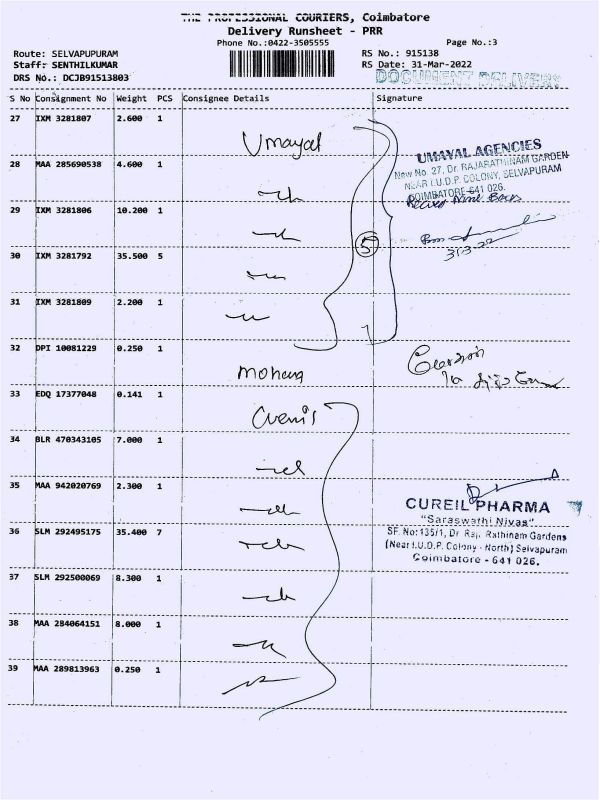 THE PROFESSIONAL COURIERS, Coimbatore
Delivery Runsheet - PRR
Phone No.:0422-3505555
Page No.:3
Route: SELVAPUPURAM
RS No.: 915138
Staff: SENTHILKUMAR
RS Date: 31-Mar-2022
DRS No.: DCJB91513803
DOCUMENT DELIVERY
S No Consignment No Weight PCS Consignee Details Signature
27 IXM 3281807 2.600 1
Umayal
UMAYAL AGENCIES
New No. 27, Dr. RAJARATHINAM GARDEN
NEAR I.U.D.P. COLONY, SELVAPURAM
COIMBATORE-641 026.
28 MAA 285690538 4.600 1
29 IXM 3281806 10.200 1
Received Nine Boxes
31-3-22
5
30 IXM 3281792 35.500 5
31 IXM 3281809 2.200 1
32 DPI 10081229 0.250 1
mohana
33 EDQ 17377048 0.141 1
34 BLR 470343105 7.000 1
35 MAA 942020769 2.300 1
CUREIL PHARMA
"Saraswathi Nivas"
SF. No: 135/1, Dr. Raj. Rathinam Gardens
(Near I.U.D.P. Colony - North) Selvapuram
Coimbatore - 641 026.
36 SLM 292495175 35.400 7
37 SLM 292500069 8.300 1
38 MAA 284064151 8.000 1
39 MAA 289813963 0.250 1